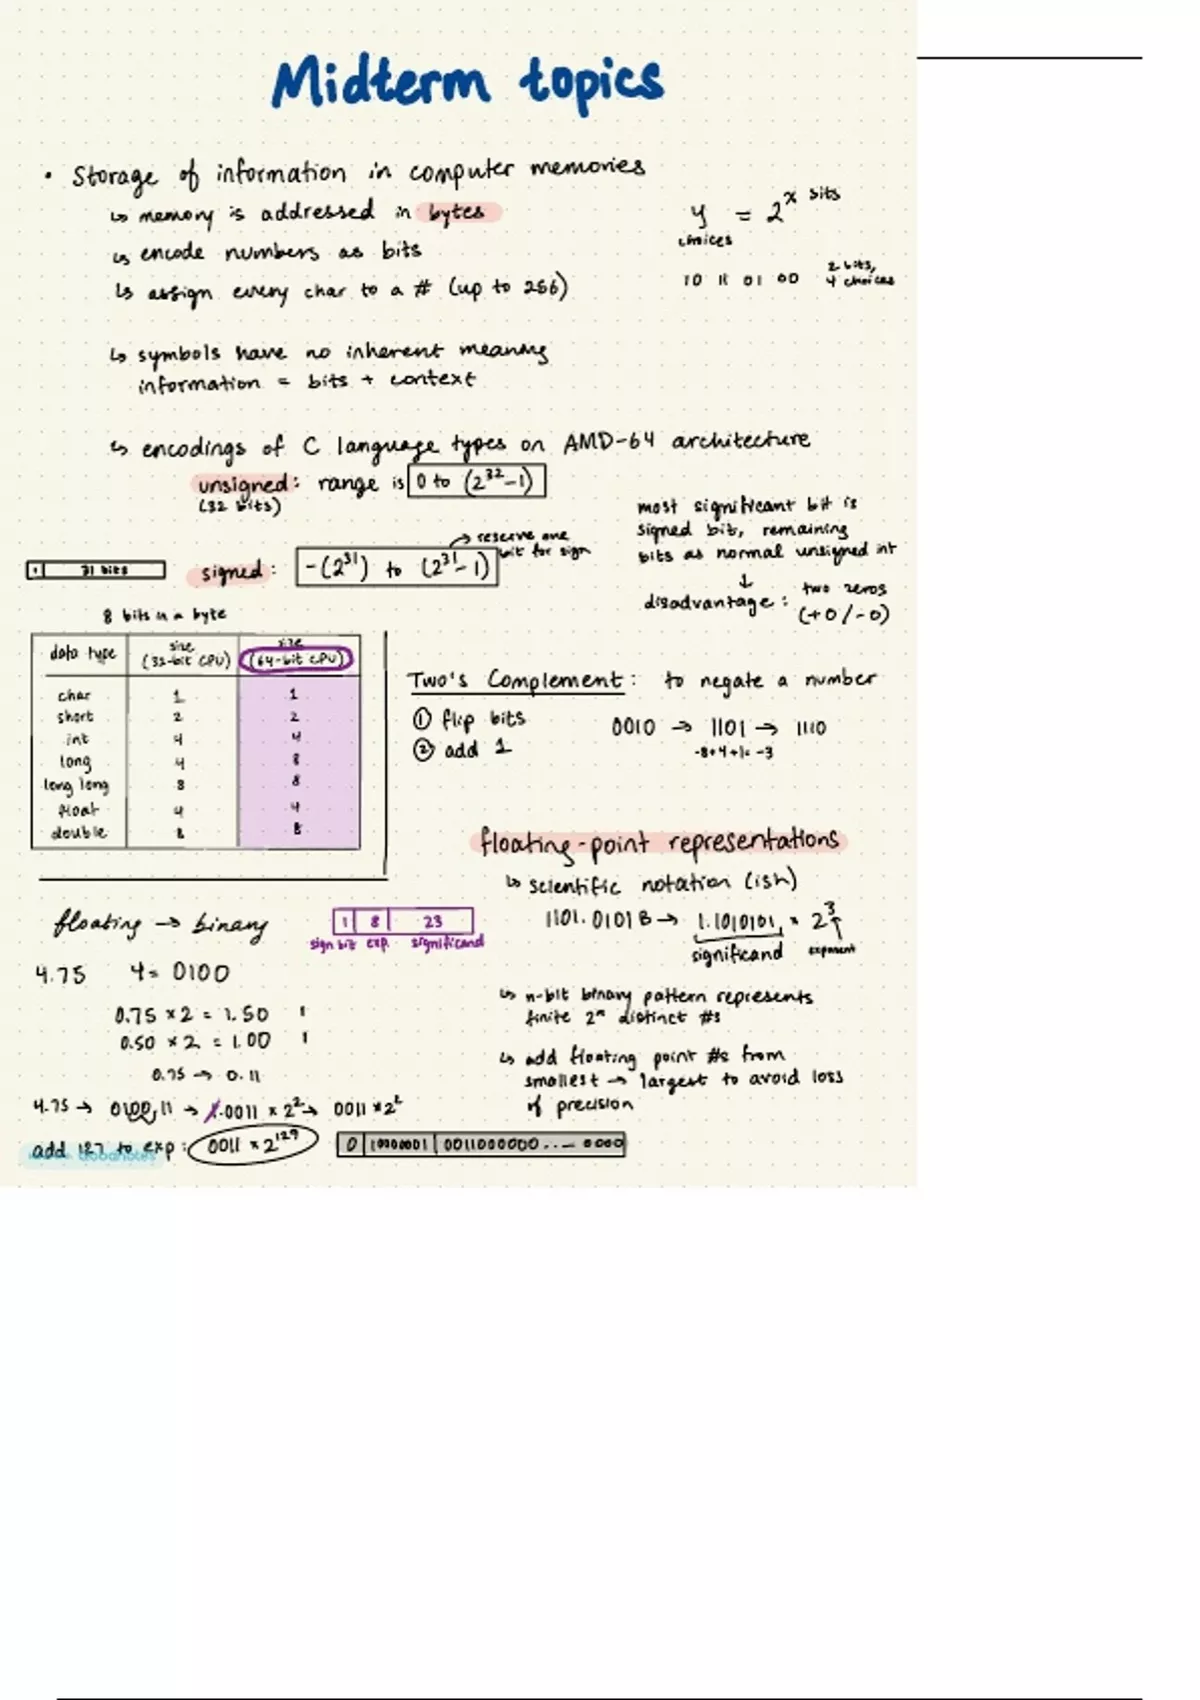 Midterm topics
• Storage of information in computer memories
↳ memory is addressed in bytes
↳ encode numbers as bits
↳ assign every char to a # (up to 256)
y = 2^x bits
choices
10 11 01 00 2 bits, 4 choices
↳ symbols have no inherent meaning
information = bits + context
↳ encodings of C language types on AMD-64 architecture
unsigned: range is 0 to (2^32 - 1)
(32 bits)
→ reserve one bit for sign
1 31 bits
signed: -(2^31) to (2^31 - 1)
most significant bit is
signed bit, remaining
bits as normal unsigned int
↓
disadvantage: two zeros (+0/-0)
8 bits in a byte
data type size (32-bit CPU) size (64-bit CPU)
char 1 1
short 2 2
int 4 4
long 4 8
long long 8 8
float 4 4
double 8 8
Two's Complement: to negate a number
① flip bits 0010 → 1101 → 1110
② add 1 -8+4+1= -3
floating-point representations
↳ scientific notation (ish)
1101.0101B → 1.1010101 × 2^3
significand exponent
↳ n-bit binary pattern represents
finite 2^n distinct #s
↳ add floating point #s from
smallest → largest to avoid loss
of precision
floating → binary
1 8 23
sign bit exp. significand
4.75 4= 0100
0.75 × 2 = 1.50 1
0.50 × 2 = 1.00 1
0.75 → 0.11
4.75 → 0100.11 → 1.0011 × 2^2 → 0011 × 2^2
add 127 to exp: 0011 × 2^129
0 10000001 0011000000...— 0000